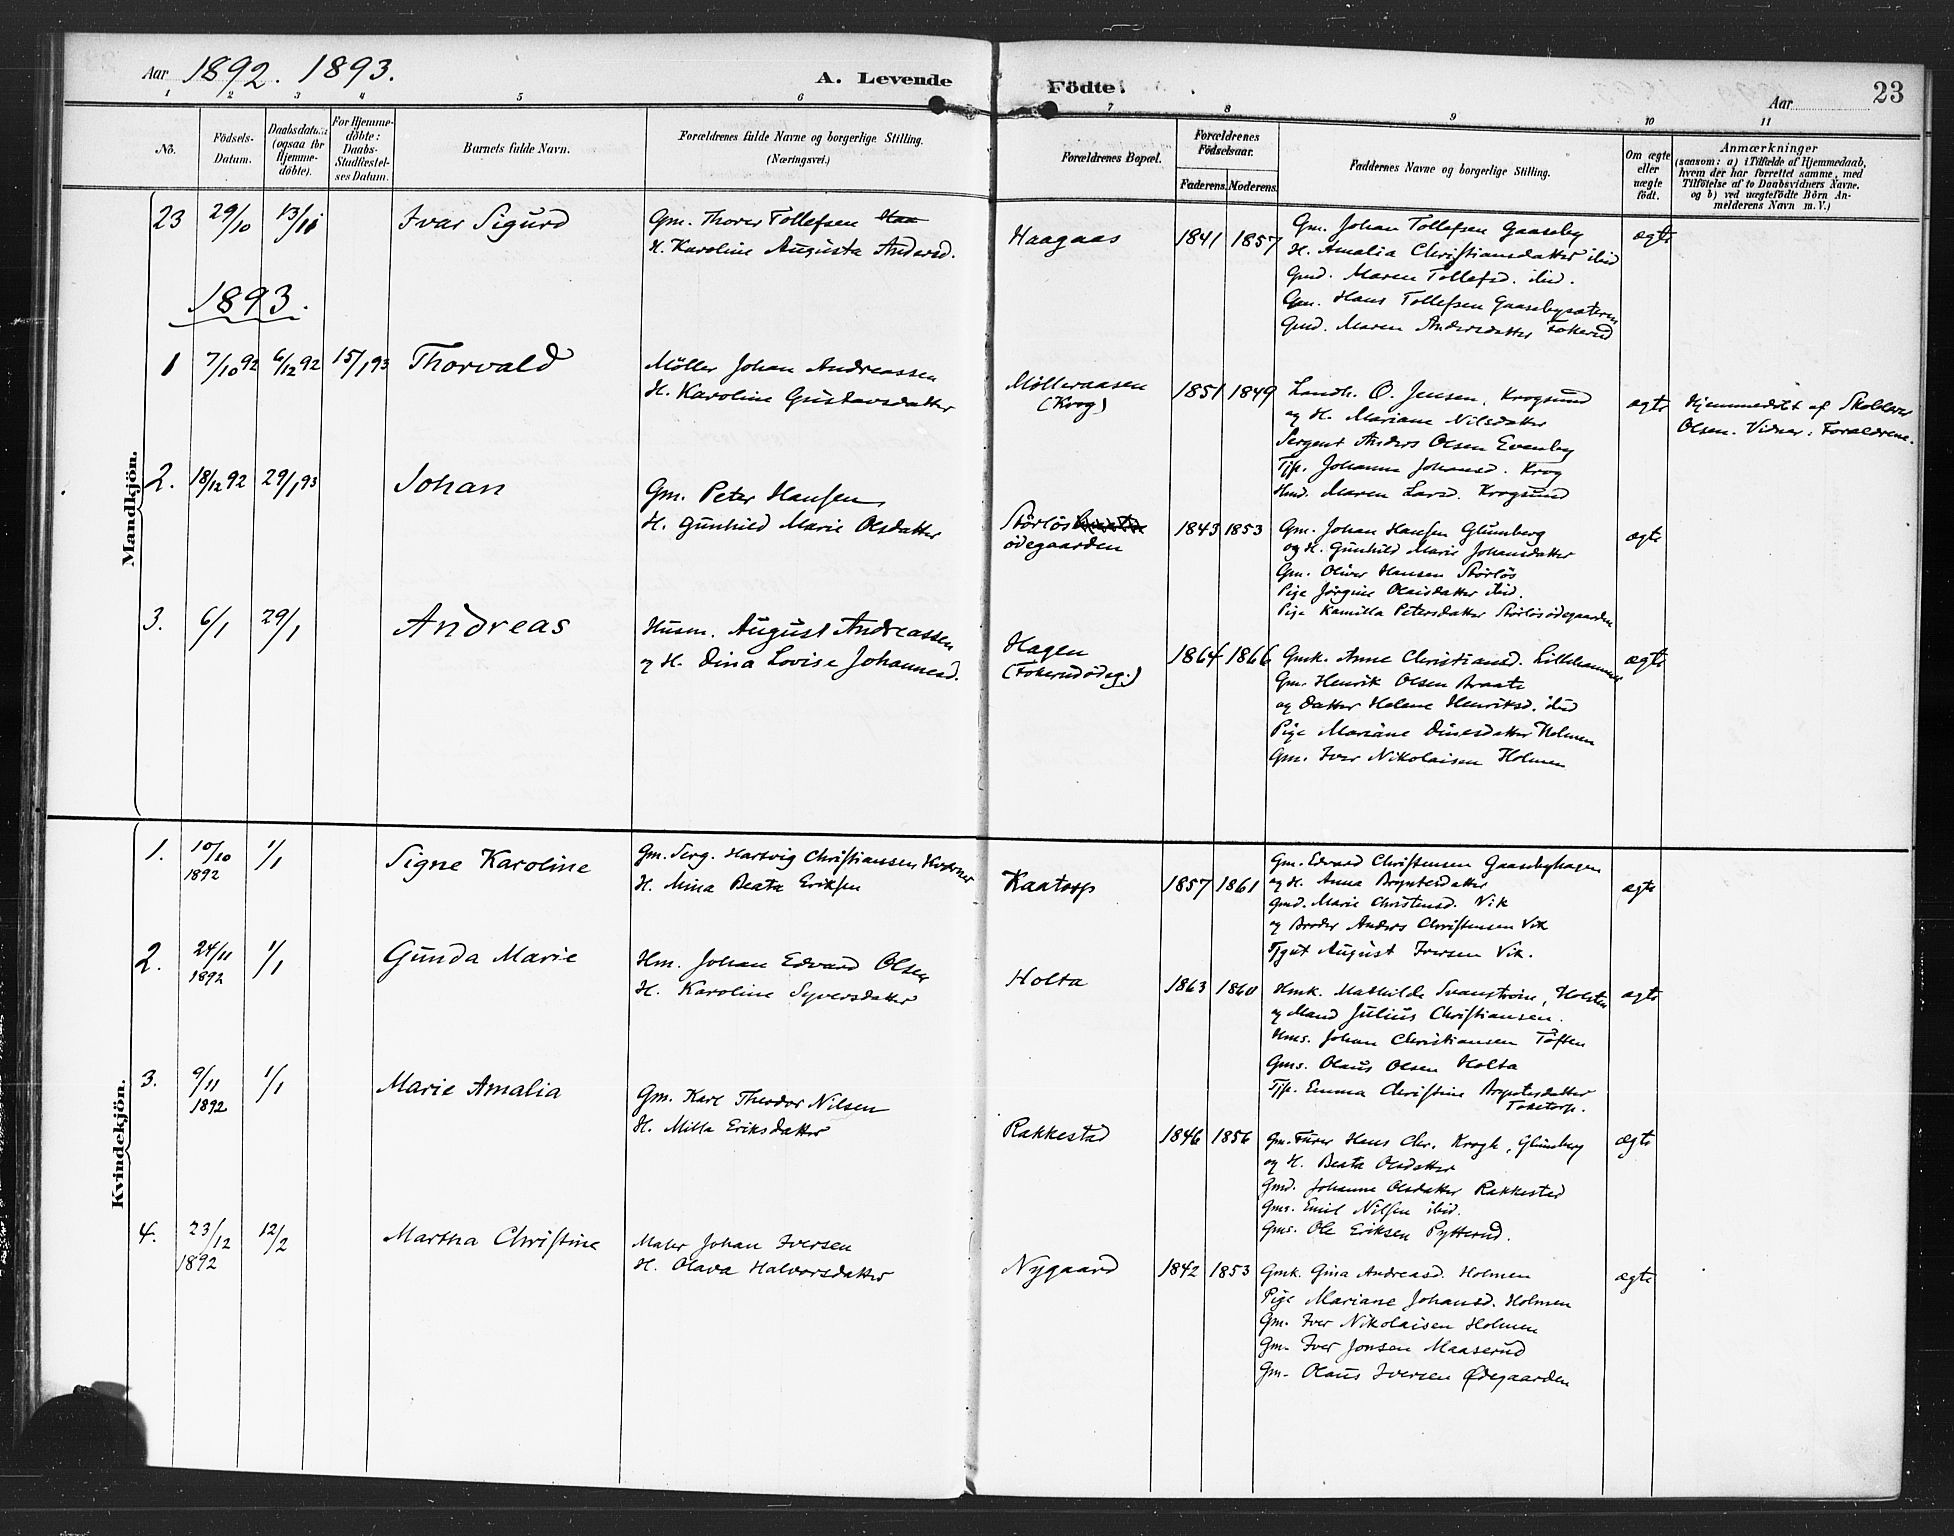 Aar 1892. 1893.
A. Levende Födte.
Aar
23
1 2 3 4 5 6 7 8 9 10 11
No.
Födsels-Datum.
Daabsdatum (ogsaa for Hjemmedöbte).
For Hjemmedöbte: Daabs-Stadfæstelses Datum.
Barnets fulde Navn.
Forældrenes fulde Navne og borgerlige Stilling.
(Næringsvei.)
Forældrenes Bopæl.
Forældrenes Födselsaar.
Faderens. Moderens.
Faddernes Navne og borgerlige Stilling.
Om ægte eller uægte födt.
Anmærkninger
(saasom: a) i Tilfælde af Hjemmedaab,
hvem der har forrettet samme, med
Tilföielse af to Daabsvidners Navne.
og b) ved uægtefödte Börn An-
melderens Navn m. V.)
Mandkjön.
23 29/10 13/11 Ivar Sigurd
Gm. Thorer Tollefsen Haa
H. Karoline Augusta Andersd.
Haagaas 1841 1857
Gm. Johan Tollefsen Gaaseby
H. Amalia Christiansdatter ibid
Gmd. Maren Tollefsd. ibid.
Gm. Hans Tollefsen Gaasebysæteren
Gmd. Maren Andersdatter Tokerud
ægte
1893.
1 7/10 92 6/12 92 15/1 93 Thorvald
Møller Johan Andreassen
H. Karoline Gustavsdatter
Mølleraasen
(Krog)
1851 1849
Landh. O. Jensen, Krogsund
og H. Mariane Nilsdatter
Sergent Anders Olsen Evenby
Tjp. Johanne Johansd. Krog
Hmd. Maren Larsd. Krogsund
ægte
Hjemmedöbt af Skolelærer
Olsen. Vidner: Forældrene.
2. 18/12 92 29/1 93 Johan
Gm. Peter Hansen,
H. Gunhild Marie Olsdatter
Störlös
ödegaarden
1843 1853
Gm. Johan Hansen Glumberg
og H. Gunhild Marie Johansdatter
Gm. Oliver Hansen Störlös
Pige Jörgine Olaisdatter ibid.
Pige Kamilla Petersdatter Störlösödegaarden
ægte
3. 6/1 29/1 Andreas
Husm. August Andreassen
og H. Dina Lovise Johannesd.
Hagen
(Tokerudödeg.)
1864 1866
Gmk. Anne Christiansd. Lillehammer
Gm. Henrik Olsen Braate
og Datter Helene Henriksd. ibid
Pige Mariane Dinesdatter Holmen
Gm. Iver Nikolaisen Holmen
ægte
Kvindekjön.
1. 10/10 1892 1/1 Signe Karoline
Gm. Serg. Hartvig Christiansen Kværner
H. Mina Beata Eriksen
Kaatorp 1857 1861
Gm. Edvard Christensen Gaasebyhagen
og H. Anna Bryntesdatter
Gmd. Marie Christensd. Vik
og Broder Anders Christensen Vik
Tjgut August Iversen Vik.
ægte
2. 24/11 1892 1/1 Gunda Marie
Hm. Johan Edvard Olsen
H. Karoline Syversdatter
Holta 1863 1860
Hmk. Mathilde Svanström, Holsten
og Mand Julius Christiansen.
Hms. Johan Christiansen Toften
Gms. Olaus Olsen Holta
Tjp. Emma Christine Bryntesdatter
Toketorp.
ægte
3. 9/11 1892 1/1 Marie Amalia
Gm. Karl Theodor Nilsen
H. Milla Eriksdatter
Rakkestad 1846 1856
Gm. Furer Hans Chr. Krogh, Glumberg
og H. Beata Olsdatter
Gmd. Johanne Olsdatter Rakkestad
Gms. Emil Nilsen ibid.
Gms. Ole Eriksen Pytterud.
ægte
4. 23/12 1892 12/2 Martha Christine
Maler Johan Iversen
H. Olava Halvorsdatter
Nygaard 1842 1853
Gmk. Gina Andreasd. Holmen
Pige Mariane Johansd. Holmen
Gm. Iver Nikolaisen Holmen
Gm. Iver Jonsen Maaserud
Gm. Olaus Iversen Ødegaarden
ægte